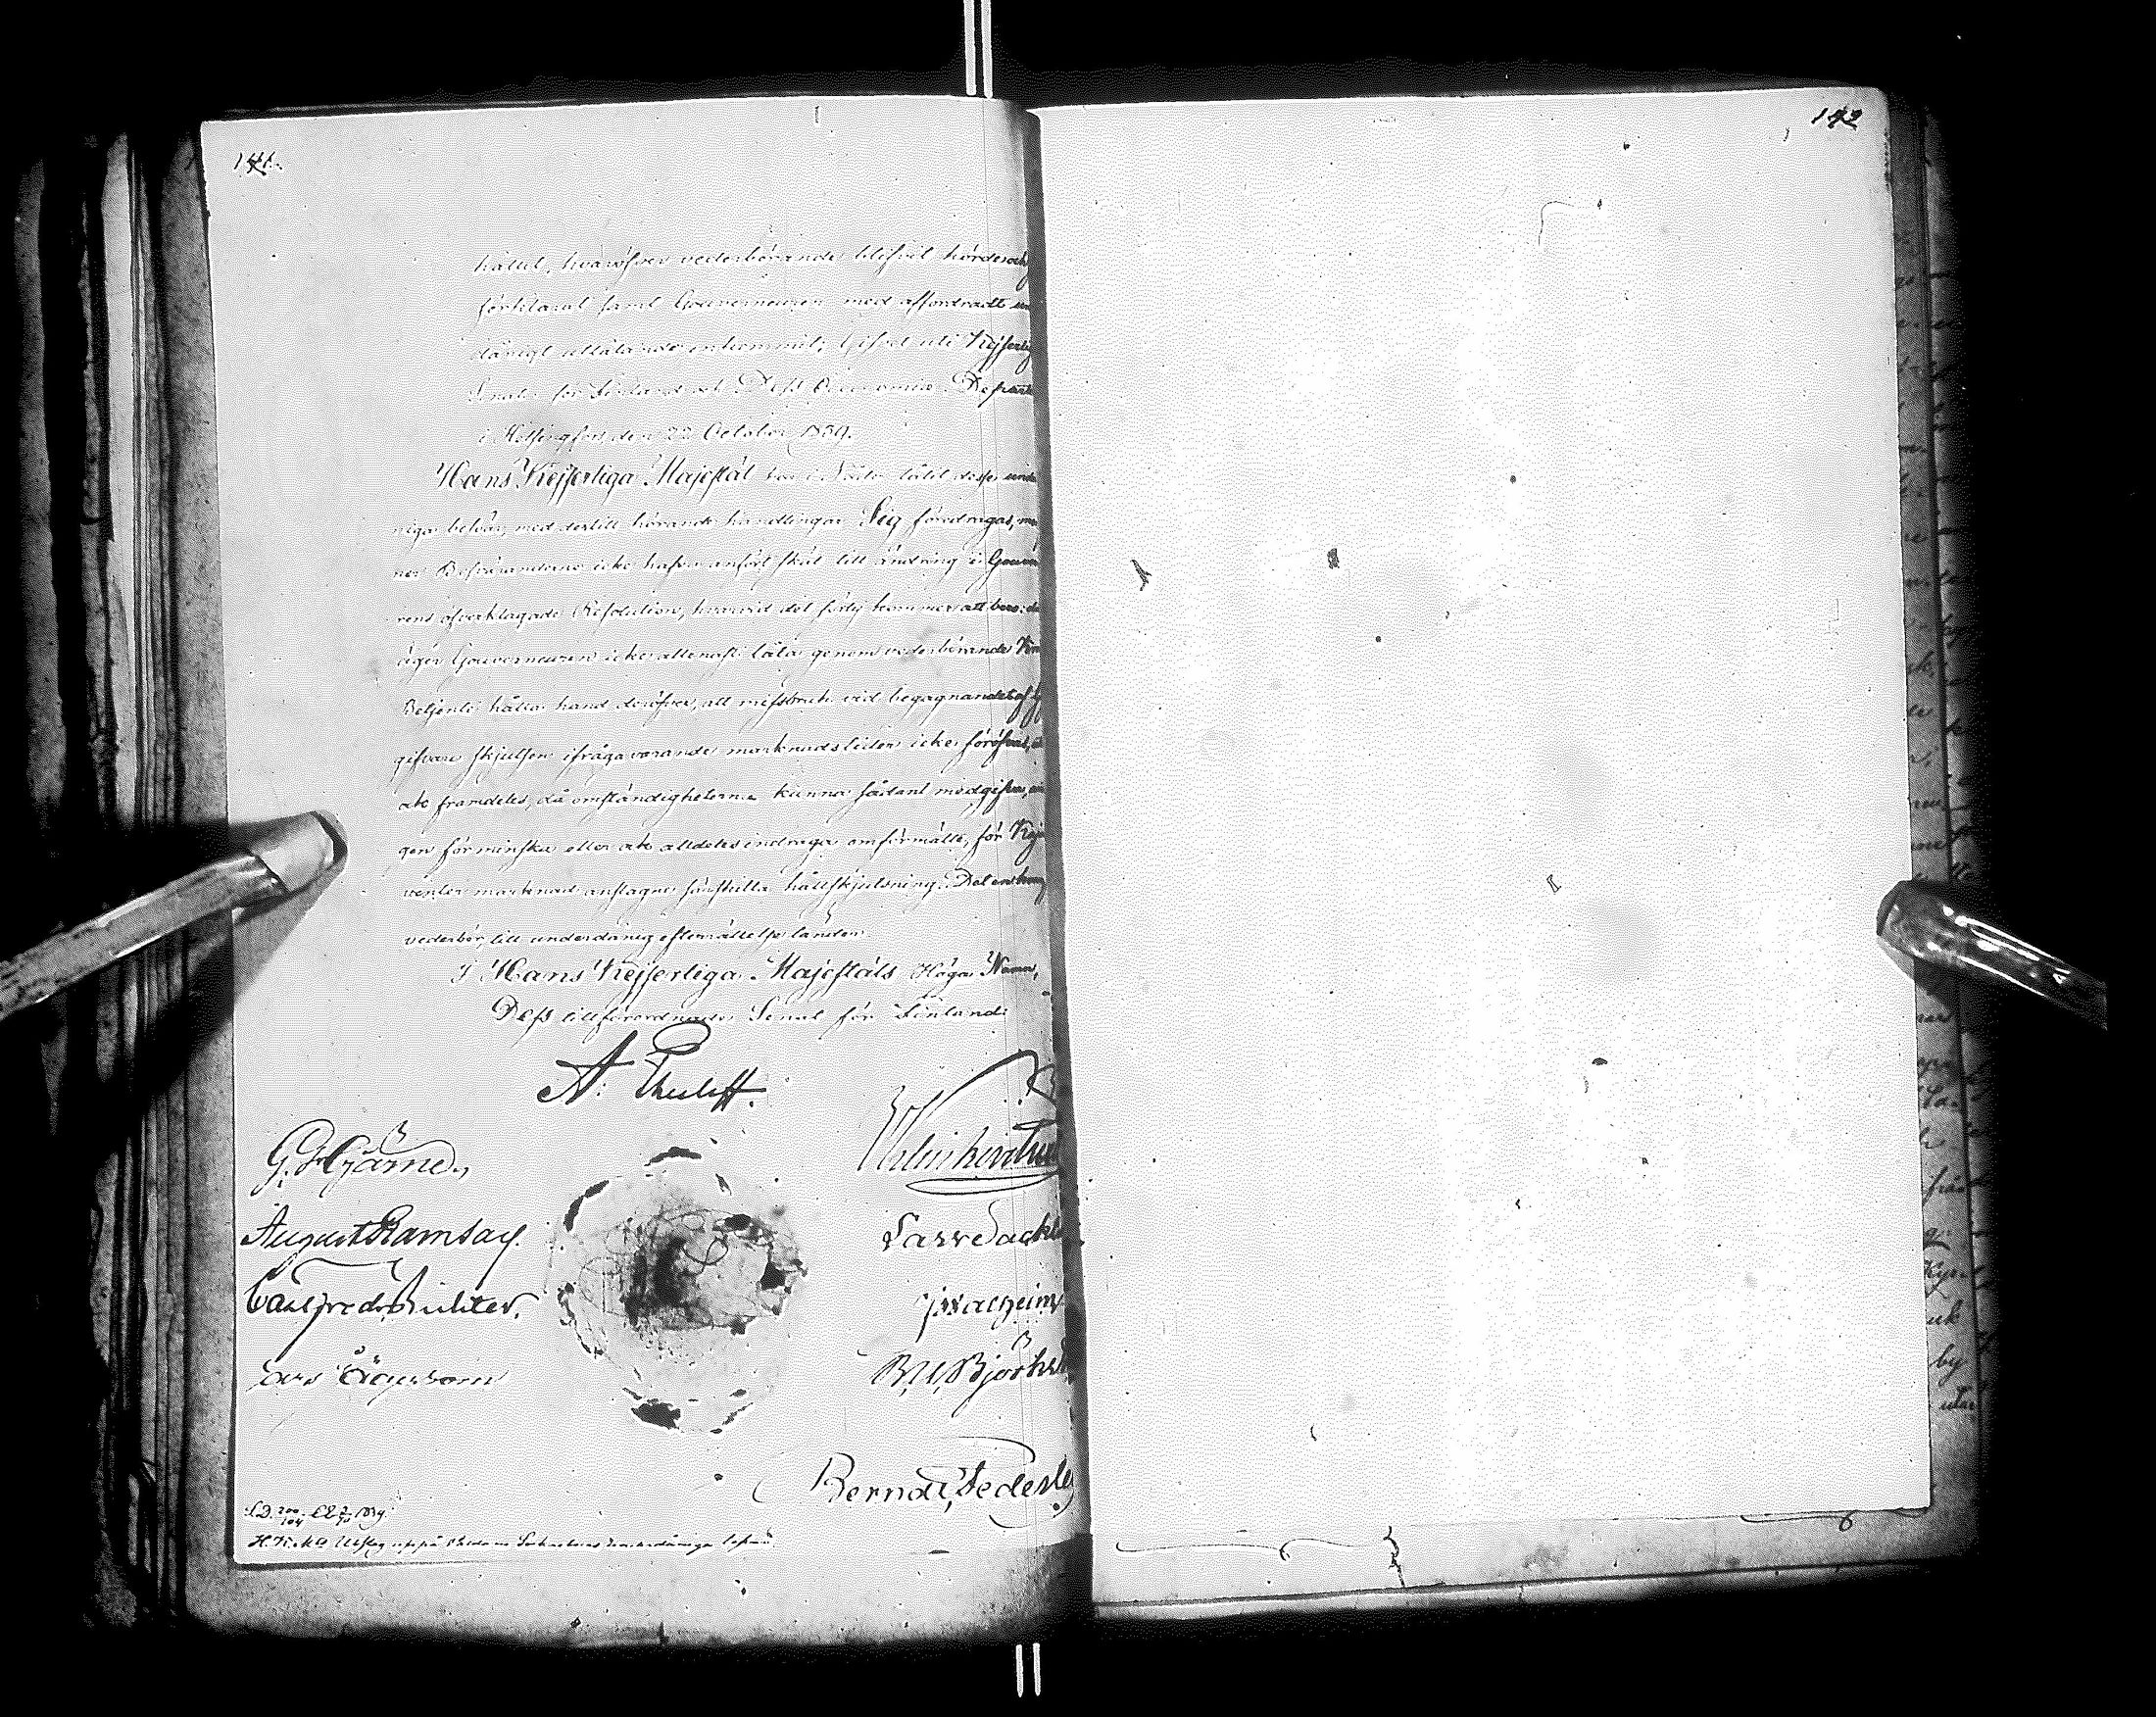 141.
hållit, hvaröfver vederbörande blifvit hörde och
förklarat samt Gouverneuren med affordradt un
dånigt utlåtande inkommit; Gifvet uti Kejserlig
Senaten för Finland och Dess Oeconomie Departe
i Helsingfors den 22 October 1839.
Hans Kejserliga Majestät har i Nåder låtit desse unde
niga besvär, med dertill hörande handlingar Sig föredragas,
ner Besvärandene icke hafva anfört skäl till ändring i Gouve
rens öfverklagade Resolution, hvarvid det förty kommer att bero: da
äger Gouverneuren icke allenast låta genom vederbörande Kro
Betjente hålla hand deröfver, att missbruk vid begagnandet af
gifvare skjutsen ifråga varande marknadstider icke föröfvas,
ock framdeles, då omständigheterna kunna sådant medgifva,
gen förminska eller ock alldeles indraga omförmälte, för
venter marknad anslagne särskilta hållskjutsning. Det
vederbör, till underdånig efterrättelse länder.
I Hans Kejserliga Majestäts Höga Namn,
Dess tillförordnade Senat för Finland:
A.
G. Hjärne.
August Ramsay.
Carl Fredr. Richter.
Lars Sackle
B. U. Björks
Bernd. Federle
1839.
H. K. M:ts Utslag uppå underdåniga besvär
142